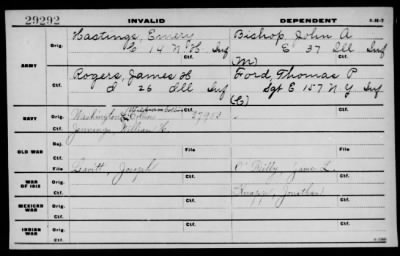 29292 INVALID DEPENDENT
ARMY Orig. Hastings, Emery Bishop, John A
E 14 N H Inf E 37 Ill Inf
Ctf. (M)
Orig. Rogers, James H Ford, Thomas P
D 26 Ill Inf Sgt E 157 N Y Inf
Ctf. (C)
NAVY Orig. Washington Collins 27953
Ctf. Jennings, William H.
OLD WAR Inj.
Ctf. File File
WAR OF 1812 Orig. Leavitt, Joseph O'Rilby, Jane L.
Ctf. Knapp, Jonathan
MEXICAN WAR Orig.
Ctf.
INDIAN WAR Orig.
Ctf.